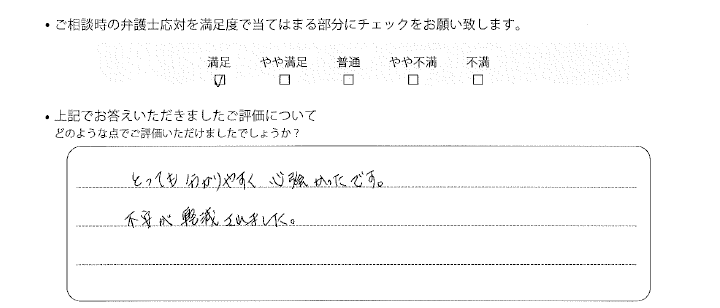 ・ご相談時の弁護士応対を満足度で当てはまる部分にチェックをお願い致します。
満足 やや満足 普通 やや不満 不満
☑ □ □ □ □
・上記でお答えいただきましたご評価について
どのような点でご評価いただけましたでしょうか？
とっても分かりやすく心強かったです。
不安が軽減されました。